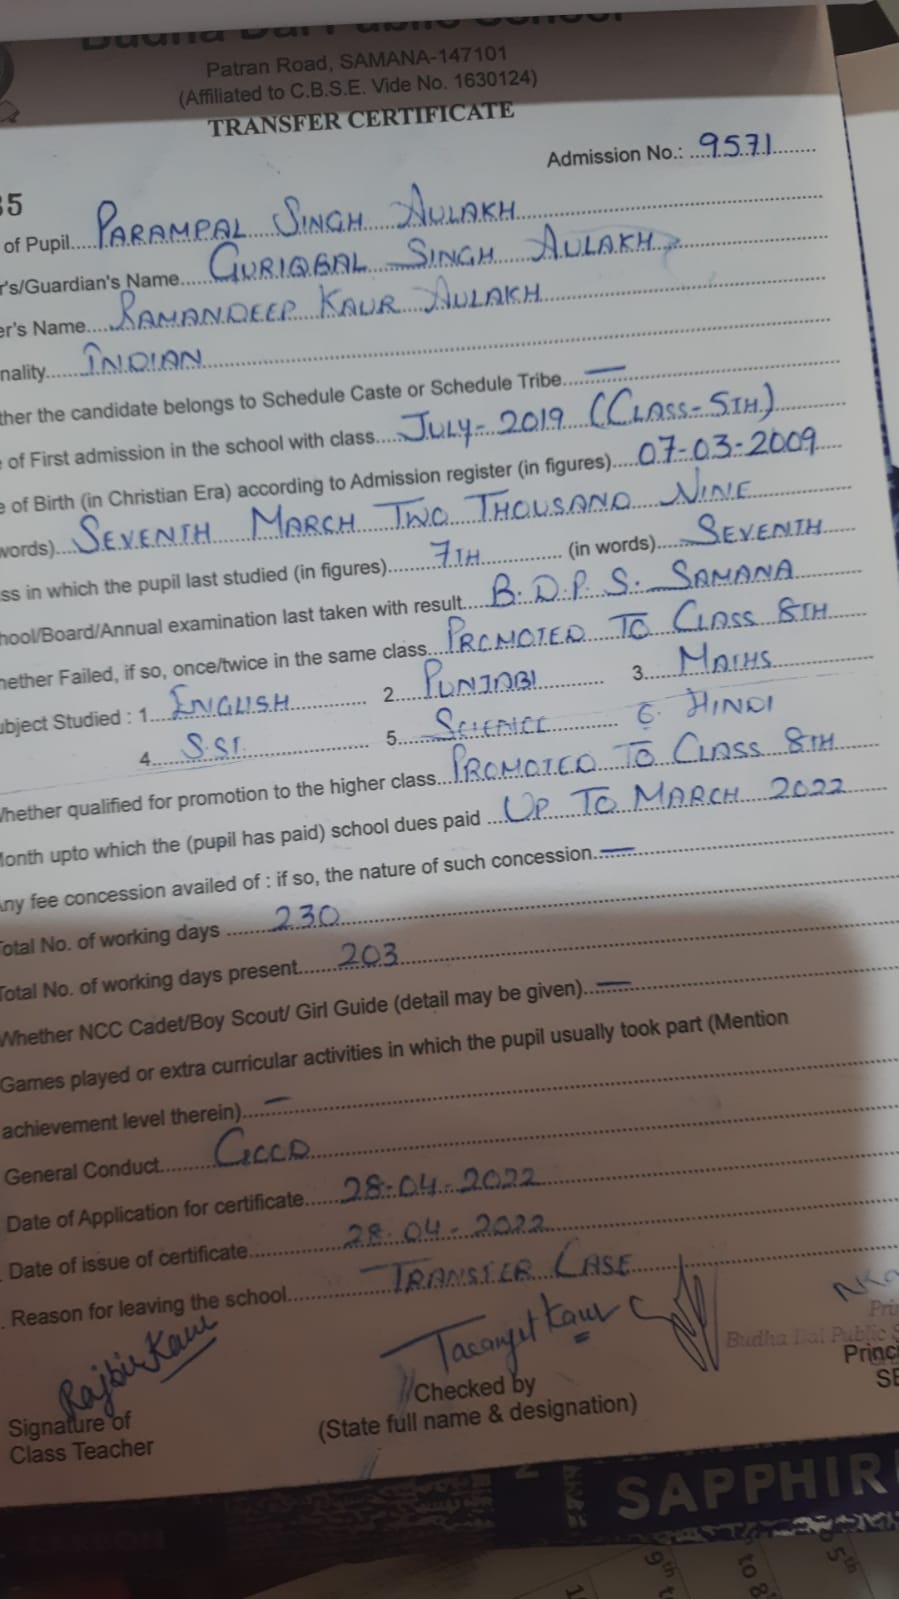 Budha Dal Public School
Patran Road, SAMANA-147101
(Affiliated to C.B.S.E. Vide No. 1630124)
TRANSFER CERTIFICATE
Admission No.: 9571
35
of Pupil PARAMPAL SINGH AULAKH
r's/Guardian's Name GURIQBAL SINGH AULAKH
er's Name RAMANDEEP KAUR AULAKH
nality INDIAN
ther the candidate belongs to Schedule Caste or Schedule Tribe —
of First admission in the school with class JULY-2019 (CLASS-5TH)
e of Birth (in Christian Era) according to Admission register (in figures) 07-03-2009
words) SEVENTH MARCH TWO THOUSAND NINE
ss in which the pupil last studied (in figures) 7TH (in words) SEVENTH
hool/Board/Annual examination last taken with result B.D.P.S. SAMANA
hether Failed, if so, once/twice in the same class PROMOTED TO CLASS 8TH
ubject Studied : 1. ENGLISH 2. PUNJABI 3. MATHS
4. S.ST. 5. SCIENCE 6. HINDI
Whether qualified for promotion to the higher class PROMOTED TO CLASS 8TH
Month upto which the (pupil has paid) school dues paid UP TO MARCH 2022
Any fee concession availed of : if so, the nature of such concession. —
Total No. of working days 230
Total No. of working days present 203
Whether NCC Cadet/Boy Scout/ Girl Guide (detail may be given) —
Games played or extra curricular activities in which the pupil usually took part (Mention
achievement level therein) —
General Conduct GOOD
Date of Application for certificate 28-04-2022
Date of issue of certificate 28-04-2022
. Reason for leaving the school TRANSFER CASE
Rajbir Kaur
Signature of
Class Teacher
Kaur
Checked by
(State full name & designation)
Pri
Budha Dal Public S
Princi
SE
SAPPHIR
9th t
to 8
5th